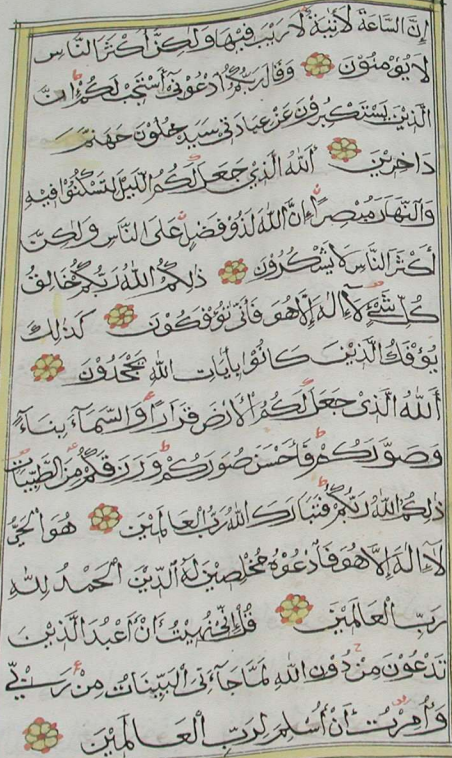 إِنَّ السَّاعَةَ لَآتِيَةٌ لَا رَيْبَ فِيهَا وَلَكِنَّ أَكْثَرَ النَّاسِ
لَا يُؤْمِنُونَ وَقَالَ رَبُّكُمُ ادْعُونِي أَسْتَجِبْ لَكُمْ إِنَّ
الَّذِينَ يَسْتَكْبِرُونَ عَنْ عِبَادَتِي سَيَدْخُلُونَ جَهَنَّمَ
دَاخِرِينَ اَللَّهُ الَّذِي جَعَلَ لَكُمُ اللَّيْلَ لِتَسْكُنُوا فِيهِ
وَالنَّهَارَ مُبْصِرًا إِنَّ اللَّهَ لَذُو فَضْلٍ عَلَى النَّاسِ وَلَكِنَّ
أَكْثَرَ النَّاسِ لَا يَشْكُرُونَ ذَلِكُمُ اللَّهُ رَبُّكُمْ خَالِقُ
كُلِّ شَيْءٍ لَا إِلَهَ إِلَّا هُوَ فَأَنَّى تُؤْفَكُونَ كَذَلِكَ
يُؤْفَكُ الَّذِينَ كَانُوا بِآيَاتِ اللَّهِ يَجْحَدُونَ
اَللَّهُ الَّذِي جَعَلَ لَكُمُ الْأَرْضَ قَرَارًا وَالسَّمَآءَ بِنَآءً
وَصَوَّرَكُمْ فَأَحْسَنَ صُوَرَكُمْ وَرَزَقَكُمْ مِنَ الطَّيِّبَاتِ
ذَلِكُمُ اللَّهُ رَبُّكُمْ فَتَبَارَكَ اللَّهُ رَبُّ الْعَالَمِينَ هُوَ الْحَيُّ
لَا إِلَهَ إِلَّا هُوَ فَادْعُوهُ مُخْلِصِينَ لَهُ الدِّينَ اَلْحَمْدُ لِلَّهِ
رَبِّ الْعَالَمِينَ قُلْ إِنِّي نُهِيتُ أَنْ أَعْبُدَ الَّذِينَ
تَدْعُونَ مِنْ دُونِ اللَّهِ لَمَّا جَآءَنِيَ الْبَيِّنَاتُ مِنْ رَبِّي
وَأُمِرْتُ أَنْ أُسْلِمَ لِرَبِّ الْعَالَمِينَ